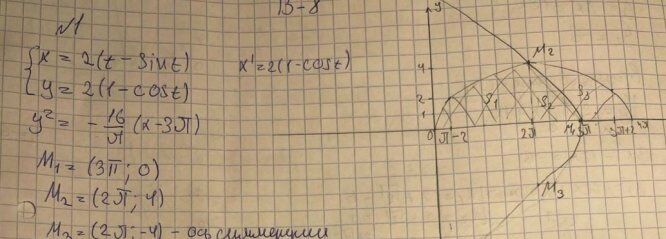 В-8
№1
x = 2(t - sin t)
x' = 2(1 - cos t)
y = 2(1 - cos t)
y² = - 16/π (x - 3π)
M₁ = (3π; 0)
M₂ = (2π; 4)
M₃ = (2π; -4) - ось симметрии
y
M₂
4
2
1
S₁
S₂
S₃
0
π-2
2π
M₁
3π
3π+2
4π
M₃